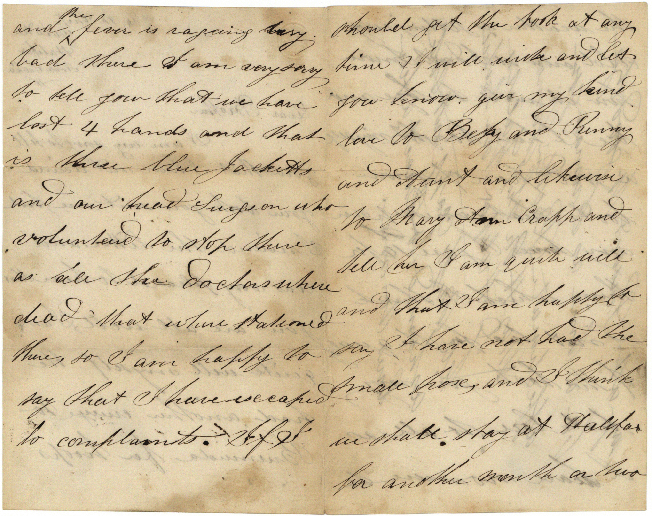 and the fever is rageing very
bad there I am very sorry
to tell you that we have
lost 4 hands and that
is three blue Jacketts
and our head Surgeon who
volunteerd to stop there
as all the doctors where
dead that where stationed
there, so I am happy to
say that I have escaped
to complaints. If I
should get the took at any
time I will write and let
you know. give my kind
love to Betsy and Penny
and Aunt and likewise
to Mary Ann Crapp and
tell her I am quite well
and that I am happy to
say I have not had the
small pox, and I think
we shall stay at Halifax
for another month or two